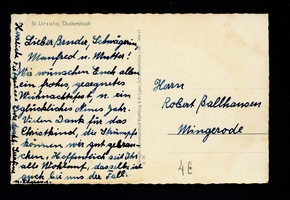 St. Ursula, Duderstadt
Lieber Bruder, Schwägerin,
Manfred u. Mutter!
Wir wünschen Euch allen
ein frohes, gesegnetes
Weihnachtsfest, u. ein
glückliches Neues Jahr.
Vielen Dank für das
Christkind, die Strümpfe
können wir gut gebrau-
chen. Hoffentlich seid Ihr
alle Wohlauf, dasselbe ist
auch bei uns der Fall.
Herrn
Robert Ballhausen
Mingerode
4€